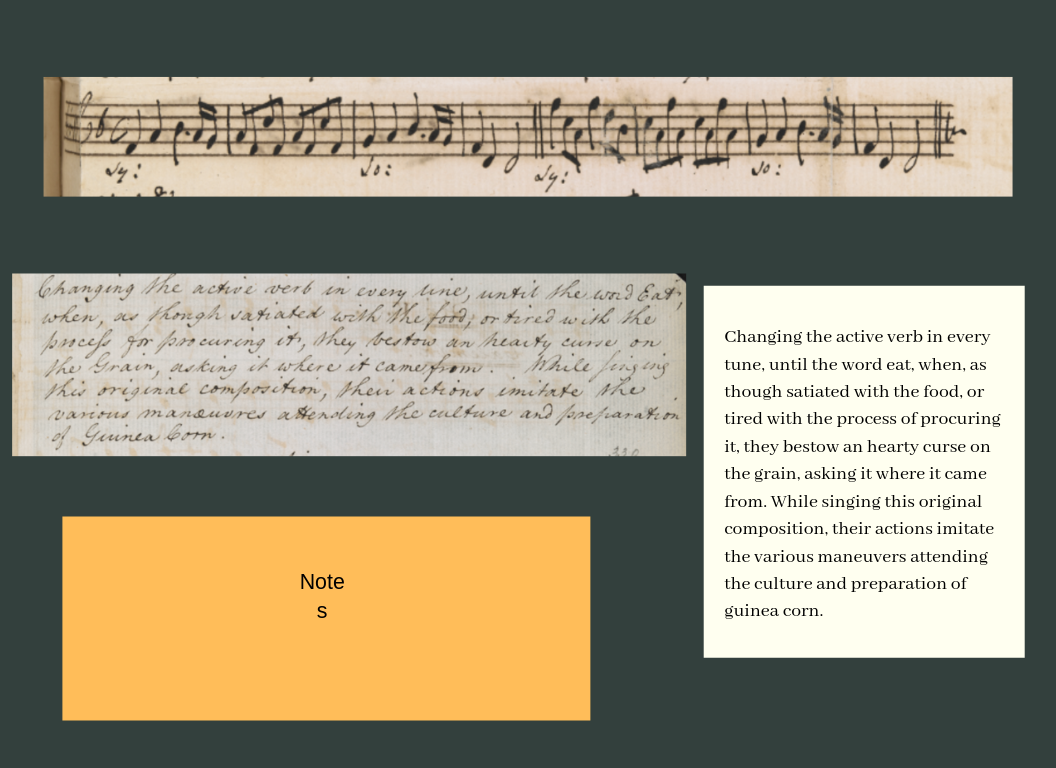 Sy: So: Sy: So:
Changing the active verb in every line, until the word Eat,
when, as though satiated with the food, or tired with the
process for procuring it, they bestow an hearty curse on
the Grain, asking it where it came from. While singing
this original composition, their actions imitate the
various manœuvres attending the culture and preparation
of Guinea Corn.
Changing the active verb in every
tune, until the word eat, when, as
though satiated with the food, or
tired with the process of procuring
it, they bestow an hearty curse on
the grain, asking it where it came
from. While singing this original
composition, their actions imitate
the various maneuvers attending
the culture and preparation of
guinea corn.
Note
s